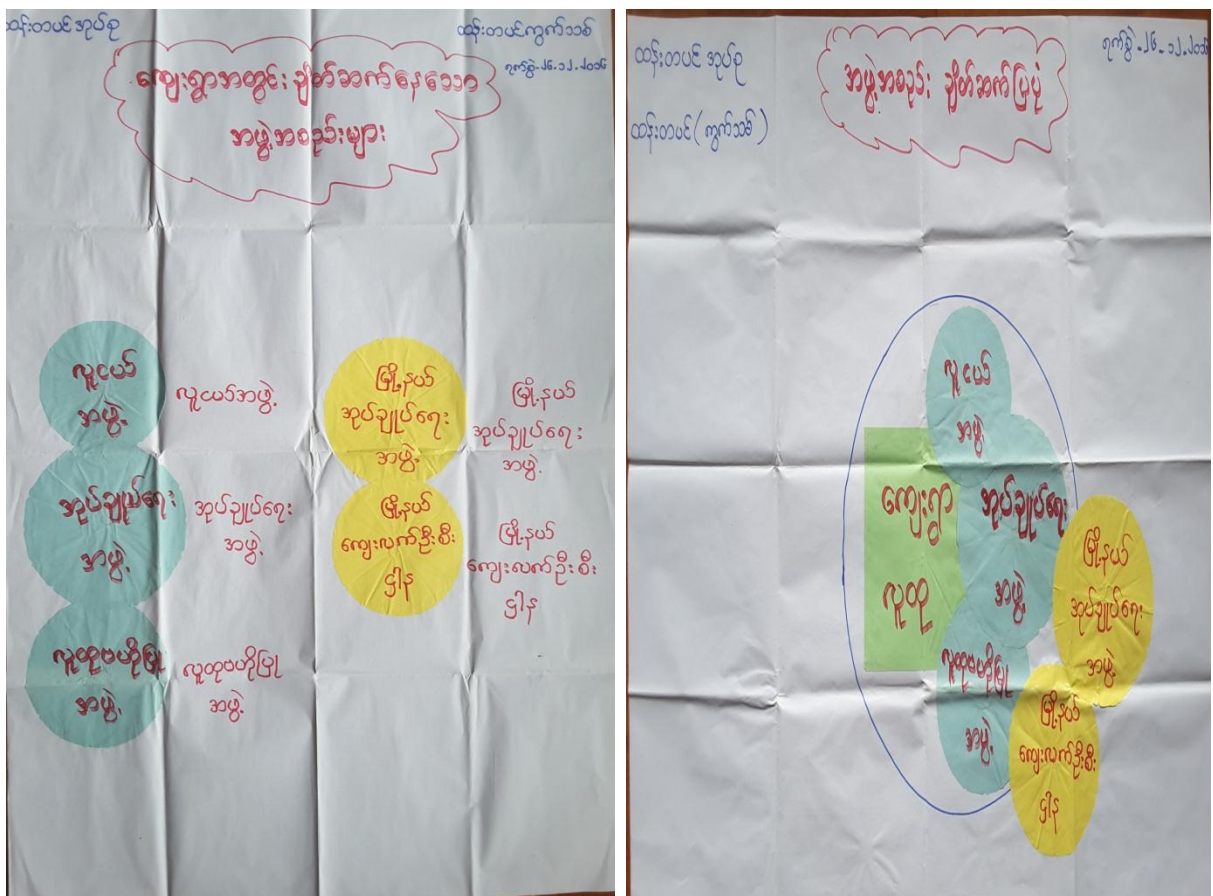 ထန်းတပင်အုပ်စု
ထန်းတပင်ကွက်သစ်
ရက်စွဲ-၂၆.၁၂.၂၀၁၆
ကျေးရွာအတွင်း ချိတ်ဆက်နေသော
အဖွဲ့အစည်းများ
လူငယ်
အဖွဲ့
လူငယ်အဖွဲ့
အုပ်ချုပ်ရေး
အဖွဲ့
အုပ်ချုပ်ရေး
အဖွဲ့
လူထုဗဟိုပြု
အဖွဲ့
လူထုဗဟိုပြု
အဖွဲ့
မြို့နယ်
အုပ်ချုပ်ရေး
အဖွဲ့
မြို့နယ်
အုပ်ချုပ်ရေး
အဖွဲ့
မြို့နယ်
ကျေးလက်ဦးစီး
ဌါန
မြို့နယ်
ကျေးလက်ဦးစီး
ဌါန
ထန်းတပင် အုပ်စု
ထန်းတပင် (ကွက်သစ်)
ရက်စွဲ.၂၆.၁၂.၂၀၁၆
အဖွဲ့အစည်း ချိတ်ဆက်ပြပုံ
လူငယ်
အဖွဲ့
ကျေးရွာ
လူထု
အုပ်ချုပ်ရေး
အဖွဲ့
လူထုဗဟိုပြု
အဖွဲ့
မြို့နယ်
အုပ်ချုပ်ရေး
အဖွဲ့
မြို့နယ်
ကျေးလက်ဦးစီး
ဌါန